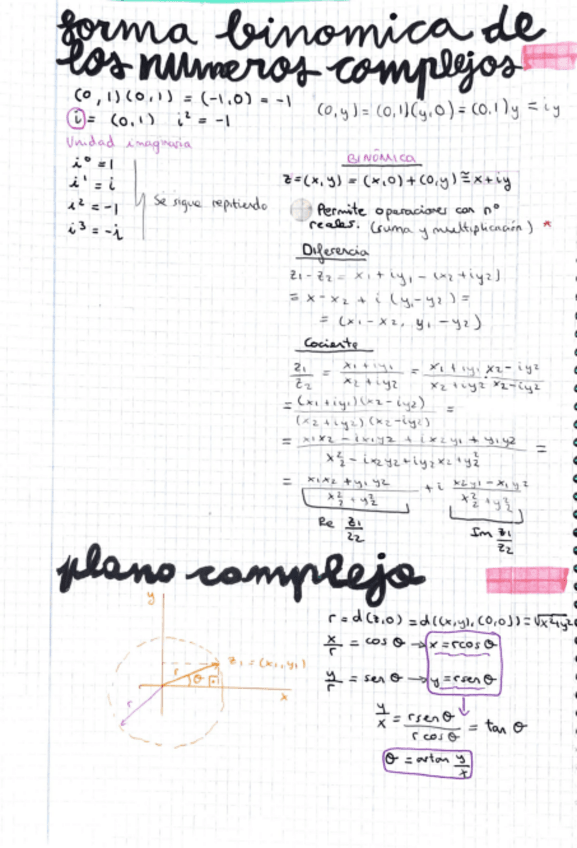 forma binomica de
los numeros complejos
(0,1)(0,1) = (-1,0) = -1
(0,y) = (0,1)(y,0) = (0,1)y = iy
i = (0,1) i² = -1
Unidad imaginaria
i⁰ = 1
i¹ = i
i² = -1
i³ = -i
Se sigue repitiendo
BINÓMICA
z = (x,y) = (x,0) + (0,y) ≅ x + iy
Permite operaciones con nº
reales. (suma y multiplicación) *
Diferencia
z₁ - z₂ = x₁ + iy₁ - (x₂ + iy₂)
= x - x₂ + i (y₁ - y₂) =
= (x₁ - x₂, y₁ - y₂)
Cociente
z₁/z₂ = x₁ + iy₁ / x₂ + iy₂ = x₁ + iy₁ / x₂ + iy₂ · x₂ - iy₂ / x₂ - iy₂
= (x₁ + iy₁)(x₂ - iy₂) / (x₂ + iy₂)(x₂ - iy₂) =
= x₁x₂ - ix₁y₂ + ix₂y₁ + y₁y₂ / x₂² - ix₂y₂ + iy₂x₂ + y₂² =
= x₁x₂ + y₁y₂ / x₂² + y₂² + i x₂y₁ - x₁y₂ / x₂² + y₂²
Re z₁/z₂ Im z₁/z₂
plano complejo
y
z₁ = (x₁, y₁)
r
θ
x
r
r = d(z,0) = d((x,y),(0,0)) = √x²+y²
x/r = cos θ → x = r cos θ
y/r = sen θ → y = r sen θ
y/x = r sen θ / r cos θ = tan θ
θ = artan y/x